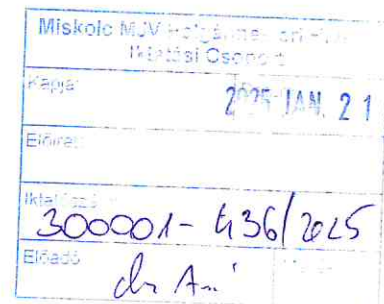 Miskolc MJV Polgármesteri
Iktatási Csoport
Kapja:
2025 JAN. 21
Előirat:
Iktatószám
300001-436/2025
Előadó
dr.